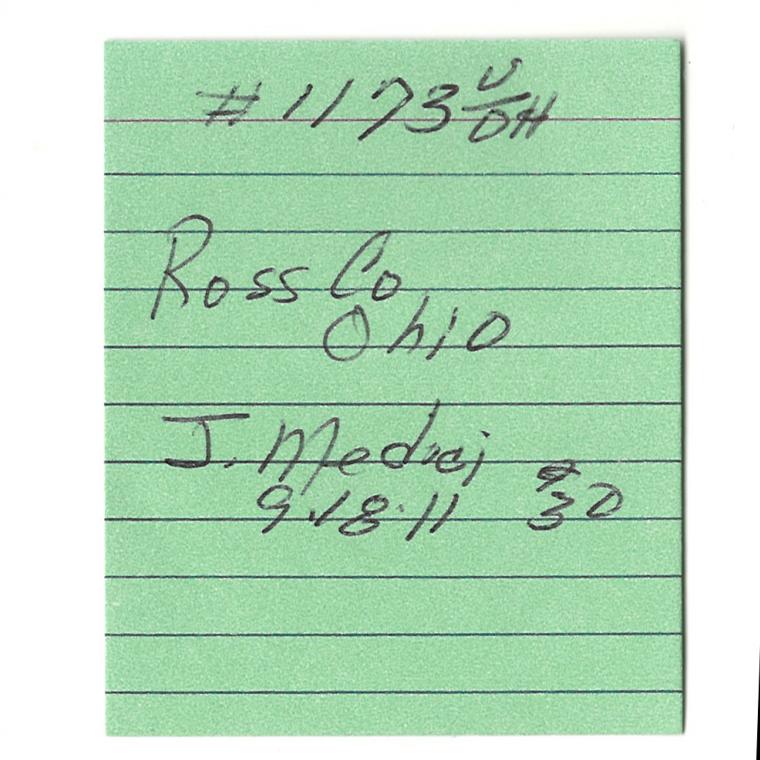 # 1173 U/OH
Ross Co
Ohio
J. Medici
9.18.11